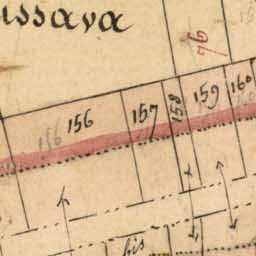 issava
76
156 157 158 159 160
156
bis